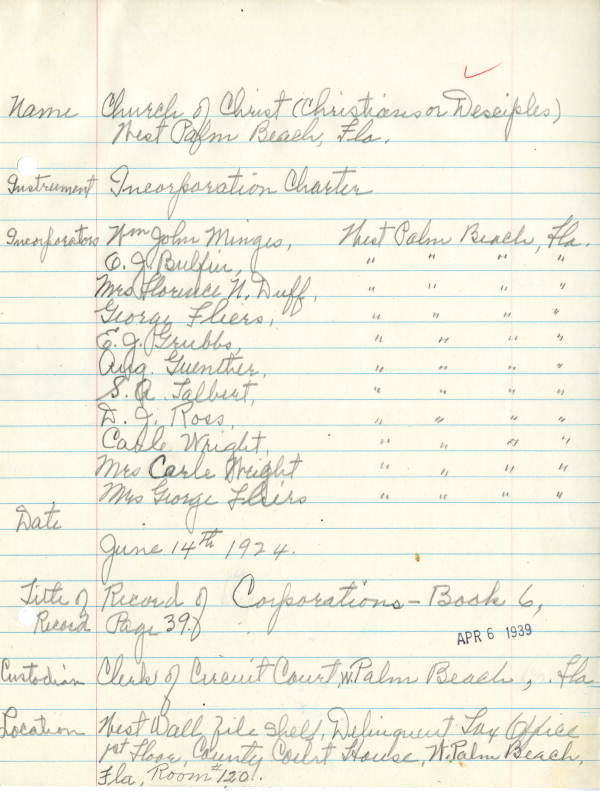 Name Church of Christ (Christians or Desciples)
West Palm Beach, Fla.
Instrument Incorporation Charter
Incorporators Wm John Minges, West Palm Beach, Fla.
O. J. Bulfin, " " " "
Mrs Florence N. Duff, " " " "
George Fliers, " " " "
E. J. Grubbs, " " " "
Aug. Guenther, " " " "
S. A. Talbert, " " " "
D. J. Ross, " " " "
Carle Wright, " " " "
Mrs Carle Wright " " " "
Mrs George Fliers " " " "
Date
June 14th 1924.
Title of Record of Corporations - Book 6,
Record Page 39.
APR 6 1939
Custodian Clerk of Circuit Court W. Palm Beach, Fla
Location West Wall File Shelf, Delinquent Tax Office
1st Floor, County Court House, W. Palm Beach,
Fla, Room #120.